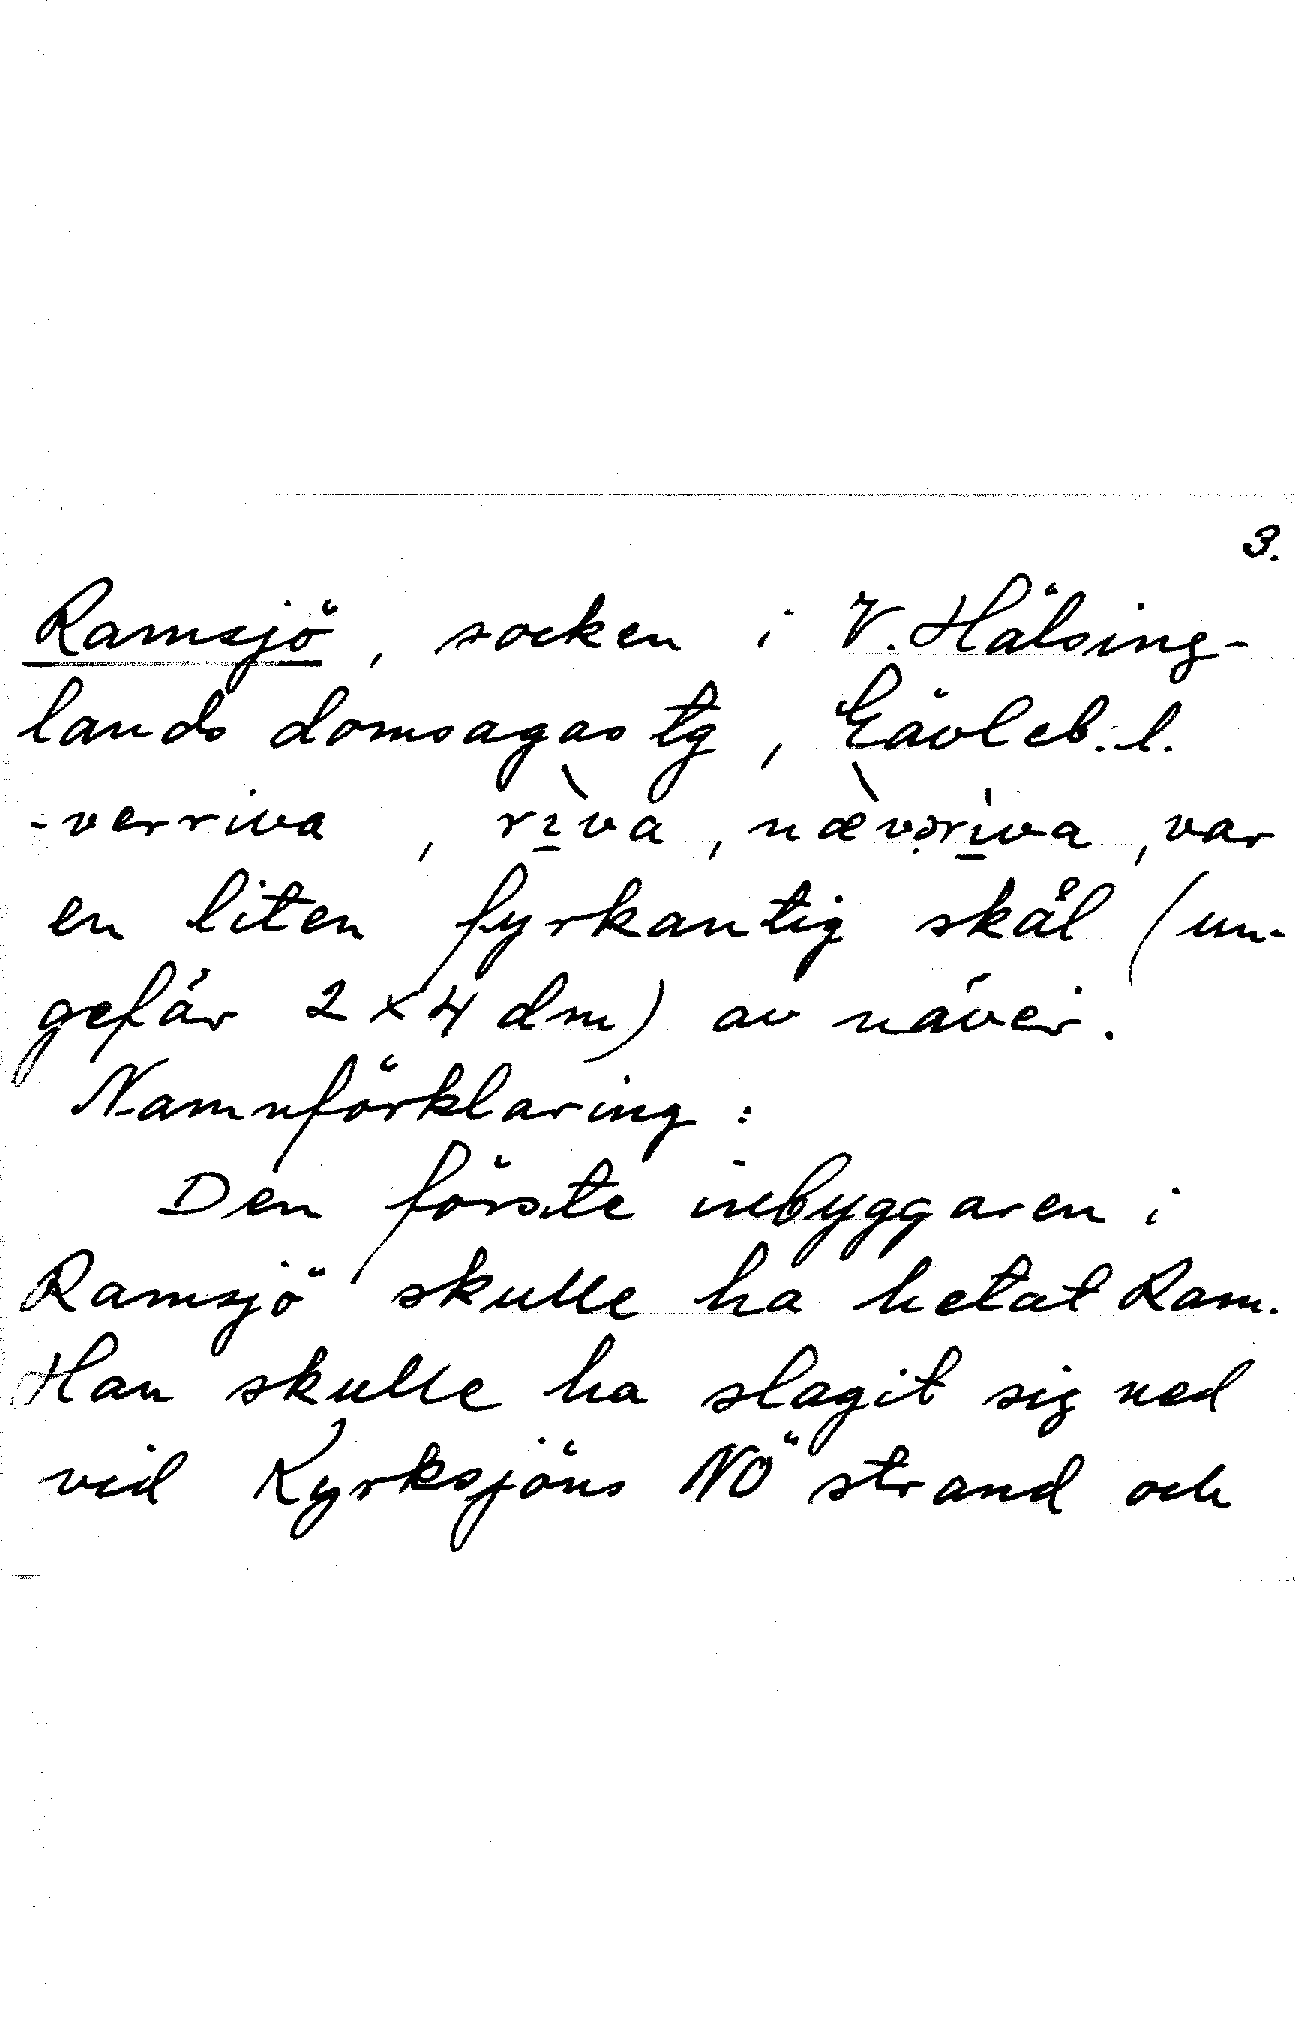 3.
Ramsjö, socken i V. Hälsing-
lands domsagas tg, Gävleb. l.
-verriva, rìva, nævəriva, var
en liten fyrkantig skål (un-
gefär 2 x 4 dm) av näver.
Namnförklaring:
Den förste inbyggaren i
Ramsjö skulle ha hetat Ram.
Han skulle ha slagit sig ned
vid Kyrksjöns NÖ strand och